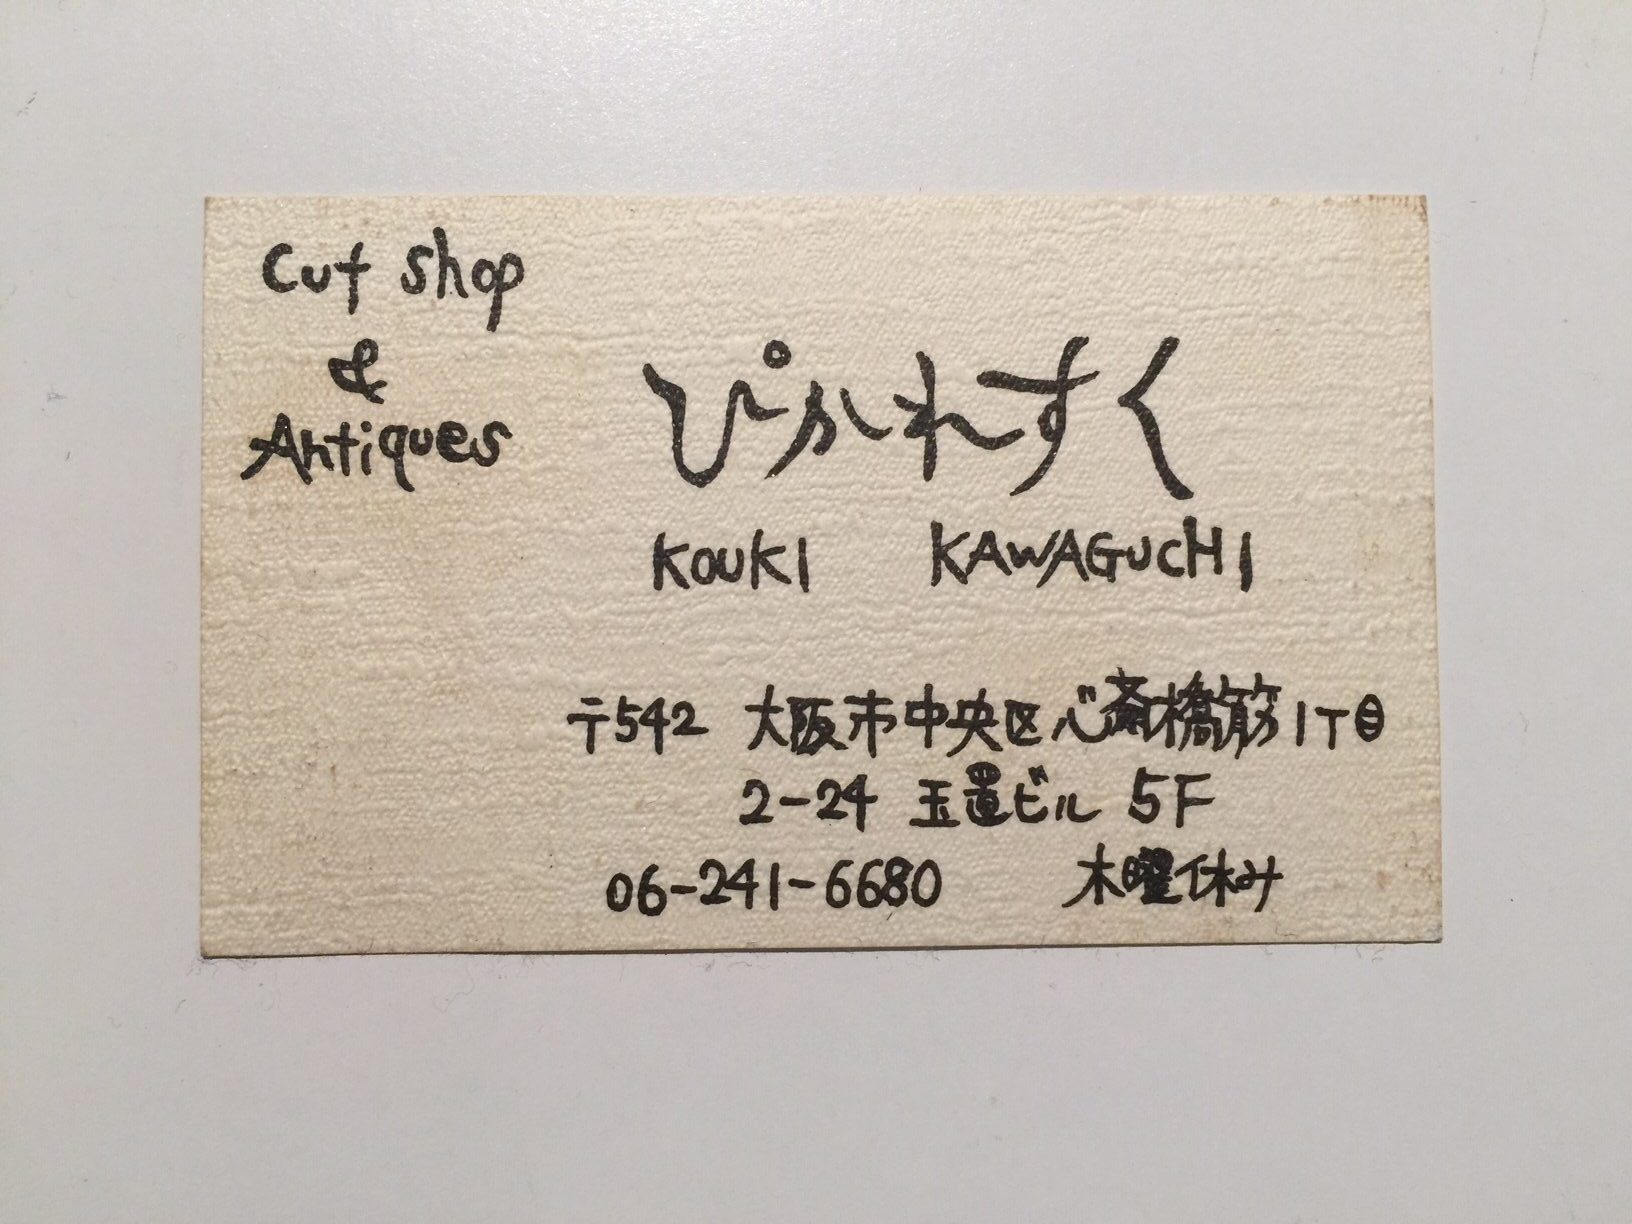 Cut shop
&
Antiques
ぴかれすく
KOUKI KAWAGUCHI
〒542 大阪市中央区心斎橋筋1丁目
2-24 玉置ビル 5F
06-241-6680 木曜休み